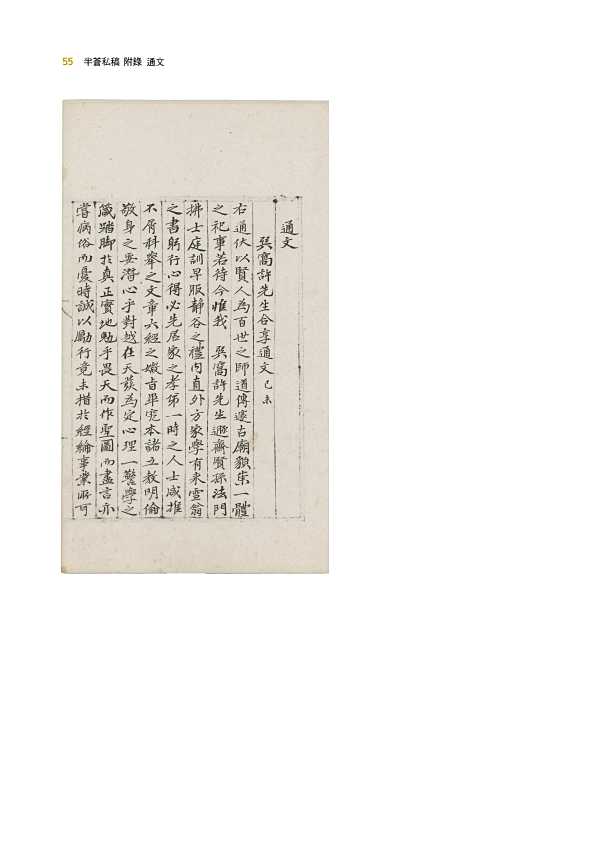 55 半蒼私稿 附錄 通文
通文
巽窩許先生合享通文 己未
右通伏以賢人為百世之師道傳邃古廟貌崇一體
之祀事若待今惟我 巽窩許先生遯齋賢孫法門
拂士庭訓早服靜谷之禮內直外方家學有來雪翁
之書躬行心得必先居家之孝弟一時之人士咸推
不屑科舉之文章六經之微旨畢究本諸立教明倫
敬身之要潛心乎對越在天發為定心理一警學之
箴踏脚於真正實地勉乎畏天而作聖圖而盡言亦
嘗病俗而憂時誠以勵行竟未措於經綸事業所可